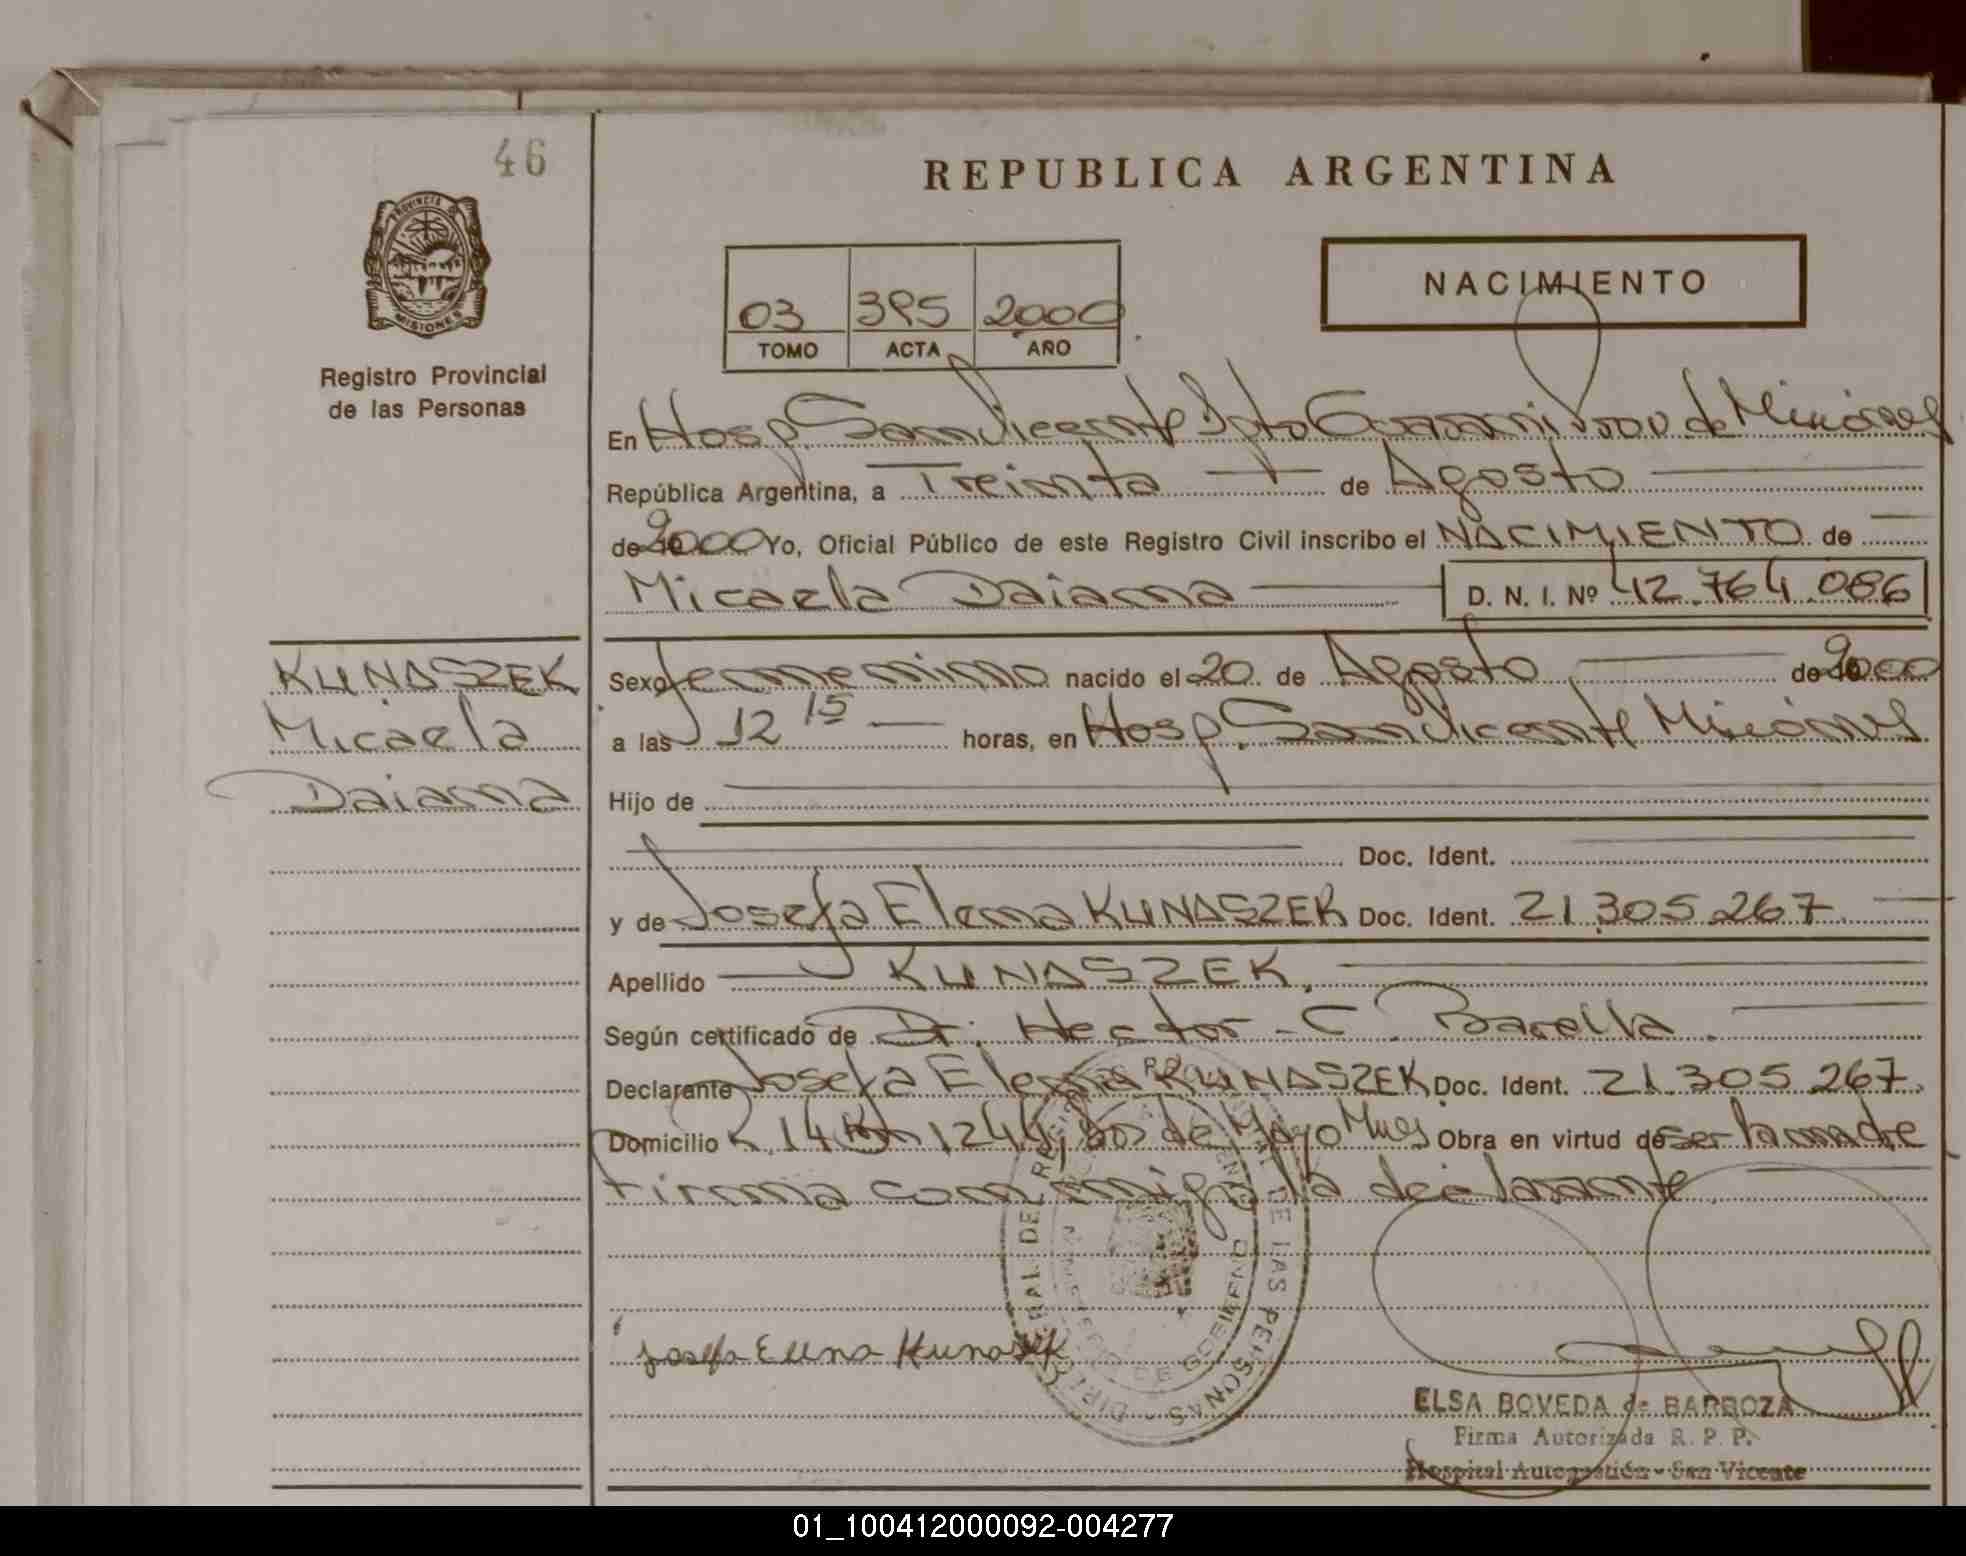 46
REPUBLICA ARGENTINA
PROVINCIA DE
MISIONES
Registro Provincial
de las Personas
NACIMIENTO
03 395 2000
TOMO ACTA AÑO
En Hosp. San Vicente Dpto Guarani Prov de Misiones
República Argentina, a Treinta de Agosto
de 2000 Yo, Oficial Público de este Registro Civil inscribo el NACIMIENTO de
Micaela Daiana D. N. I. Nº 42.764.086
KUNASZEK
Micaela
Daiana
Sexo femenino nacido el 20 de Agosto de 2000
a las 12 15 horas, en Hosp. San Vicente Misiones
Hijo de
Doc. Ident.
y de Josefa Elena KUNASZEK Doc. Ident. 21.305.267
Apellido KUNASZEK
Según certificado de Dr. Hector C. Barella
Declarante Josefa Elena KUNASZEK Doc. Ident. 21.305.267
Domicilio R. 14 Km 1244, de Mayo Mnes Obra en virtud de ser la madre
Firma conmigo la declarante
Josefa Elena Kunaszek
ELSA BOVEDA de BARROZA
Firma Autorizada R. P. P.
Hospital Autogestión - San Vicente
01_100412000092-004277